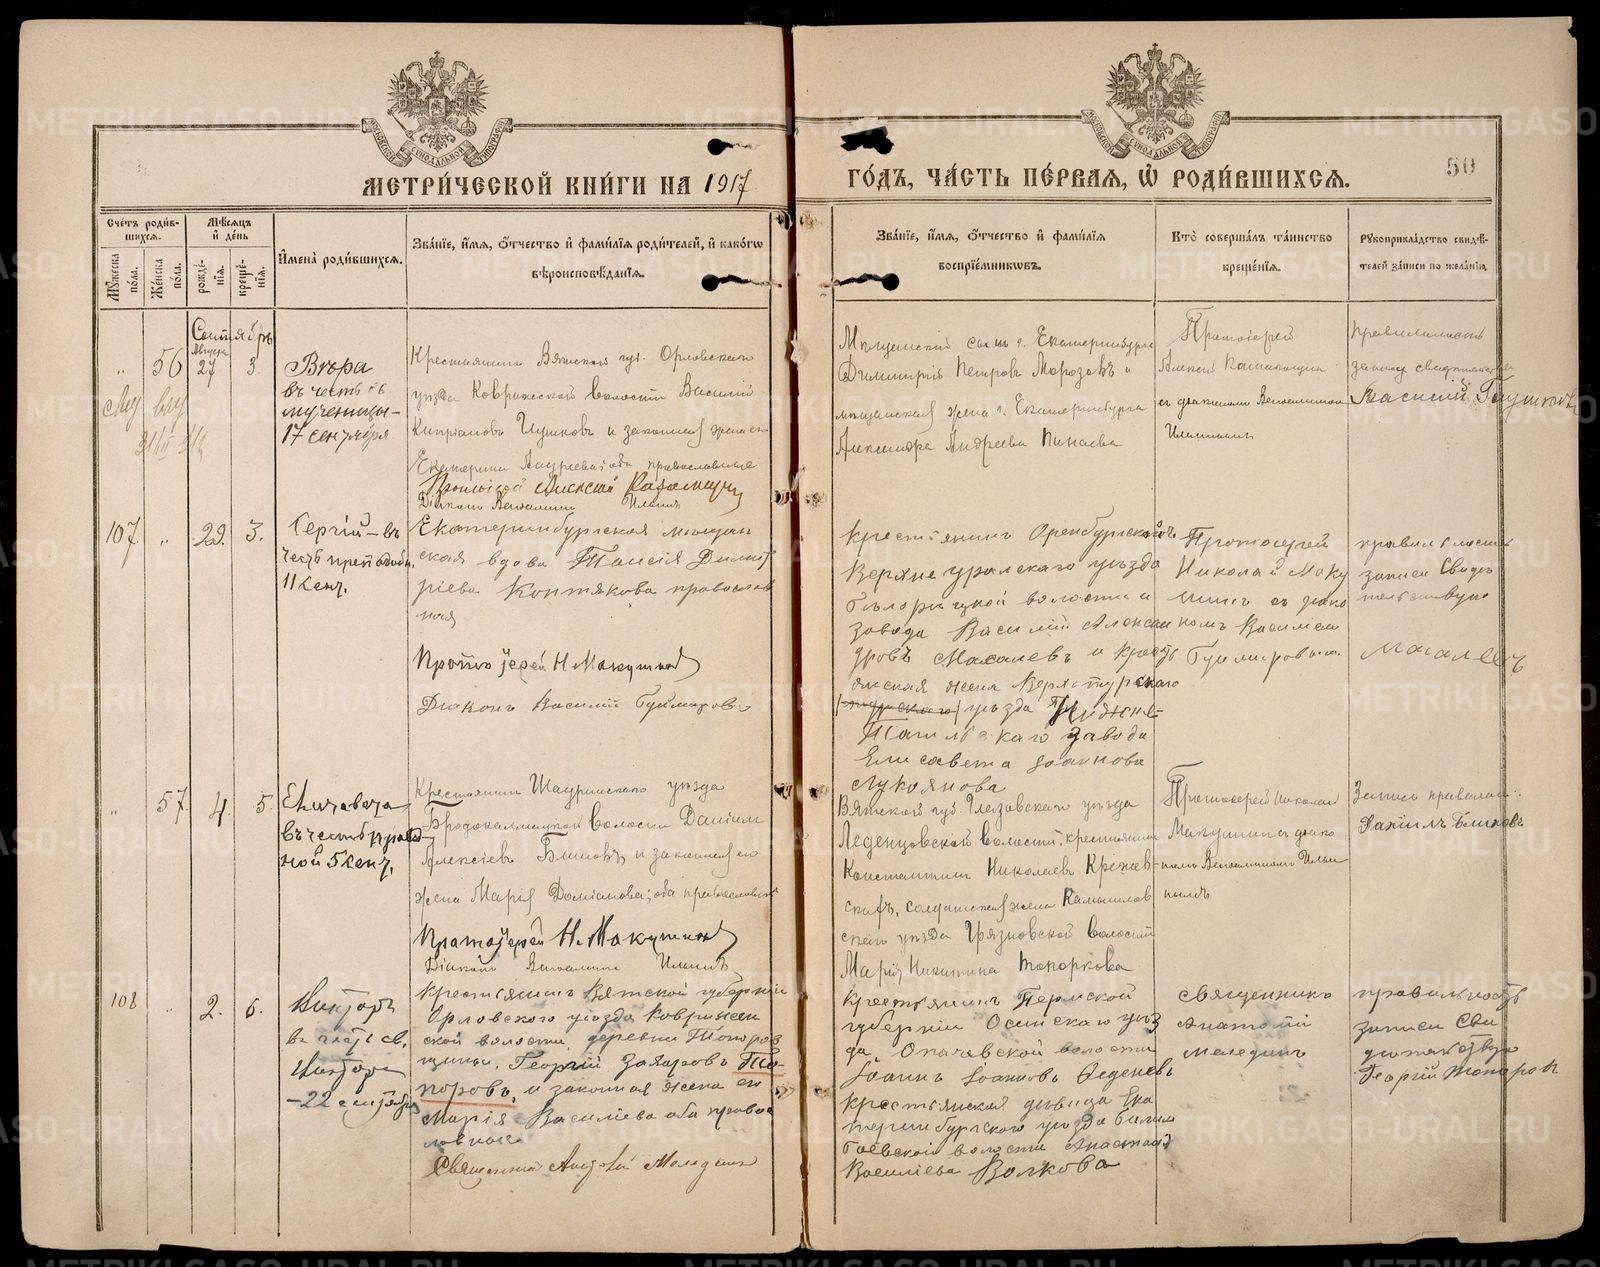 МЕТРИ́ЧЕСКОЙ КНИ́ГИ НА 1917
ГО́ДЪ, ЧА́СТЬ ПЕ́РВАЯ, Ѽ РОДИ́ВШИХСЯ.
50
Сче́тъ роди́в-
шихся.
Мѣ́сяцъ
и де́нь
Мꙋ́жеска по́ла.
Же́нска по́ла.
рожде́-нїѧ.
креще́-нїѧ.
И҆мена̀ роди́вшихся.
Зва́нїе, и҆́мѧ, ѻ҆́тчество и҆ фами́лїѧ роди́телей, и҆ како́гѡ
вѣроисповѣ́данїѧ.
Зва́нїе, и҆́мѧ, ѻ҆́тчество и҆ фами́лїѧ
воспрїе́мникѡвъ.
Кто̀ соверша́лъ та́инство
креще́нїѧ.
Рꙋкоприкла́дство свидѣ́-
телей за́писи по жела́нїю.
Сентябрь
" 56 Августа 27 3
Вѣра
въ честь
мученицы-
17 сентября
Крестьянинъ Вятской губ. Орловскаго
уѣзда Ковринской волости Василій
Кипріановъ Глушковъ и законная жена его
Екатерина Андреева; оба православные
Протоіерей Алексій
Діаконъ Веніаминъ Ильинъ
Мѣщанскій сынъ г. Екатеринбурга
Димитрій Петровъ Морозовъ и
мѣщанская жена г. Екатеринбурга
Александра Андреева Пинаева
Протоіерей
Алексій
съ діакономъ Веніаминомъ
Ильинымъ
правильность
записи свидѣтельствую
Василій Глушковъ
107 " 29. 3.
Сергій - въ
честь преподобн.
11 сент.
Екатеринбургская мѣщан
ская вдова Таисія Димит
ріева Контякова православ
ная
Протоіерей Н. Макушинъ
Діаконъ Василій Буймировъ
Крестьянинъ Оренбургской
Верхнеуралскаго уѣзда
Бѣлорѣцкой волости и
завода Василій Алексан
дровъ Масалевъ и кресть
янская жена Верхотурскаго
уѣзда Нижне-
Тагильскаго завода
Елисавета Іоаннова
Лукоянова
Протоіерей
Николай Маку
шинъ съ діако
номъ Василіем
Буймировым.
правильность
записи Свидѣ
тельствую
Масалевъ
" 57 4. 5.
Елизавета
въ честь правед
ной 5 сент.
Крестьянин Шадринскаго уѣзда
Бродокалмацкой волости Даніилъ
Алексіевъ Блиновъ и законная его
жена Марія Даміанова; оба православные
Протоіерей Н. Макушинъ
Діаконъ Веніаминъ Ильинъ
Вятской губ. Глазовскаго уѣзда
Леденцовской волости, крестьянинъ
Константинъ Николаевъ Кржев-
скихъ, солдатская жена Камышлов
скаго уѣзда Грязновской волости
Марія Никитина Топоркова
Протоіерей Николай
Макушинъ съ діако
номъ Веніаминомъ Ильи
нымъ
Запись правильна.
Даніилъ Блиновъ
108 " 2. 6.
Викторъ
въ честь св.
Виктора
-22 сентября
Крестьянинъ Вятской губерніи
Орловскаго уѣзда Ковринск
ской волости, деревни Топоров
щины, Георгій Захаровъ То-
поровъ, и законная жена его
Марія Василіева оба право
славные
Священникъ Анатолій Меледин
Крестьянинъ Пермской
губерніи Осинскаго уѣз
да, Опачевской волости
Іоаннъ Іоанновъ Феденевъ
крестьянская дѣвица Ека
теринбургскаго уѣзда Балта
баевской волости Анастасія
Василіева Волкова
священникъ
Анатолій
Мелединъ
правильность
записи Сви
дѣтельствую
Георгій Топоровъ
METRIKI.GASO-URAL.RU